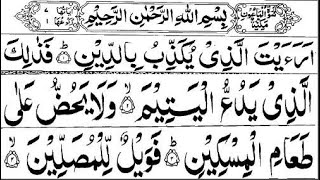 بِسْمِ اللهِ الرَّحْمٰنِ الرَّحِيْمِ
اَرَءَيْتَ الَّذِىْ يُكَذِّبُ بِالدِّيْنِ ۱ فَذٰلِكَ
الَّذِىْ يَدُعُّ الْيَتِيْمَ ۲ وَلَا يَحُضُّ عَلٰى
طَعَامِ الْمِسْكِيْنِ ۳ فَوَيْلٌ لِّلْمُصَلِّيْنَ ۴